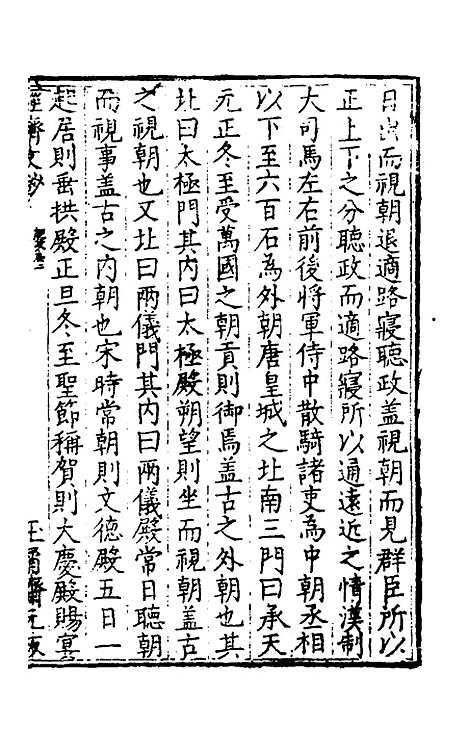 日出而視朝退適路寢聽政蓋視朝而見群臣所以
正上下之分聽政而適路寢所以通遠近之情漢制
大司馬左右前後將軍侍中散騎諸吏為中朝丞相
以下至六百石為外朝唐皇城之北南三門曰承天
元正冬至受萬國之朝貢則御焉蓋古之外朝也其
北曰太極門其內曰太極殿朔望則坐而視朝蓋古
之視朝也又北曰兩儀門其內曰兩儀殿常日聽朝
而視事蓋古之內朝也宋時常朝則文德殿五日一
起居則垂拱殿正旦冬至聖節稱賀則大慶殿賜宴
經濟文鈔